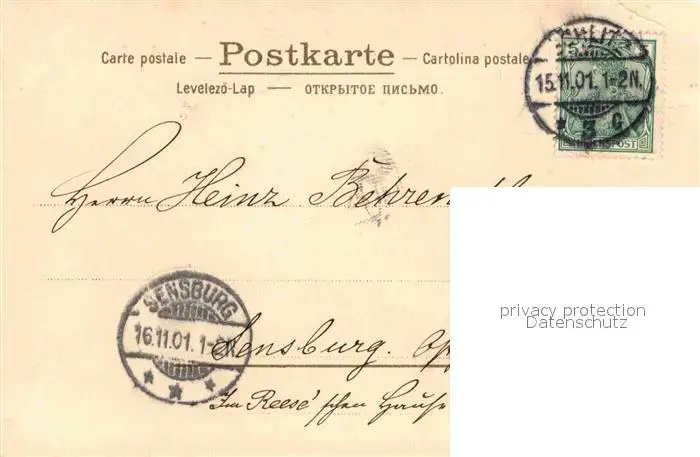 Carte postale — Postkarte — Cartolina postale
Levelező-Lap — ОТКРЫТОЕ ПИСЬМО.
15.11.01. 1-2N.
3 G
Herrn Heinz Behren
SENSBURG
16.11.01. 1-
Sensburg. Op
Im Reese'schen Hause
privacy protection
Datenschutz